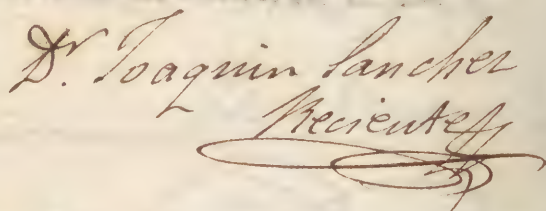 Dr. Joaquin Sanchez
Reciente